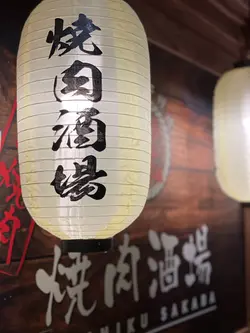 焼肉酒場
焼肉酒場
NIKU SAKABA